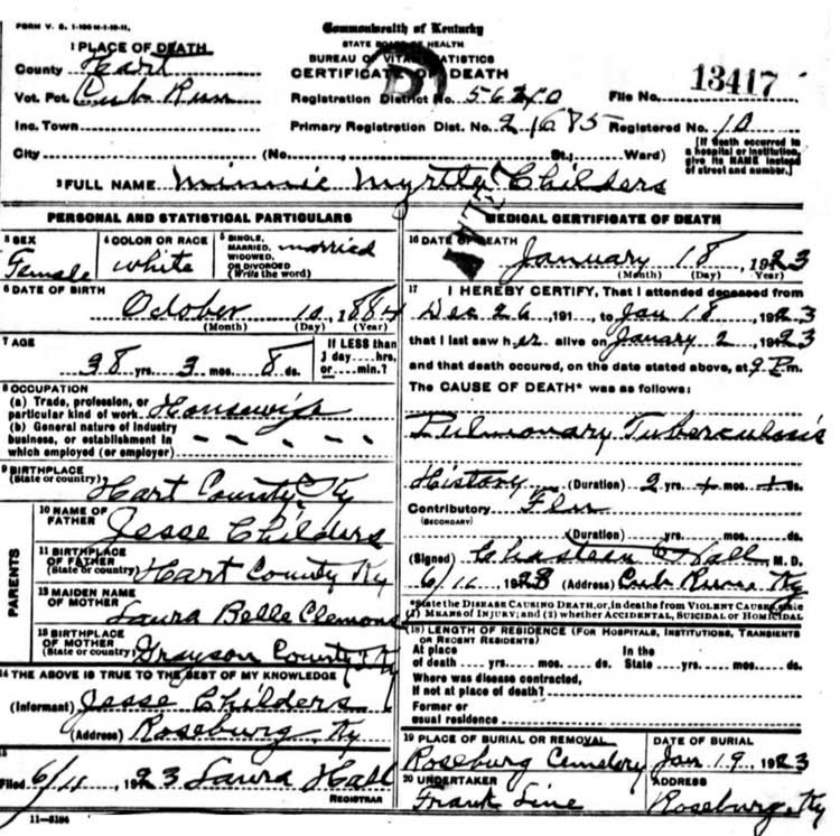 FORM V. S. 1-
Commonwealth of Kentucky
STATE BOARD OF HEALTH
BUREAU OF VITAL STATISTICS
CERTIFICATE OF DEATH
1 PLACE OF DEATH
County Hart
Vot. Pct. Cub Run
Inc. Town
Registration District No. 5620
File No. 13417
Primary Registration Dist. No. 21685
Registered No. 10
City (No. St.; Ward)
[If death occurred in a hospital or institution, give its NAME instead of street and number.]
2 FULL NAME Minnie Myrtle Childers
PERSONAL AND STATISTICAL PARTICULARS
3 SEX Female
4 COLOR OR RACE white
5 SINGLE, MARRIED, WIDOWED, OR DIVORCED (Write the word) married
6 DATE OF BIRTH
October 10, 1884
(Month) (Day) (Year)
7 AGE
38 yrs. 3 mos. 8 ds.
If LESS than 1 day....hrs. or....min.?
8 OCCUPATION
(a) Trade, profession, or
particular kind of work Housewife
(b) General nature of industry
business, or establishment in
which employed (or employer)
9 BIRTHPLACE
(State or country) Hart County Ky
PARENTS
10 NAME OF FATHER Jesse Childers
11 BIRTHPLACE OF FATHER (State or country) Hart County Ky
12 MAIDEN NAME OF MOTHER Laura Belle Clemons
13 BIRTHPLACE OF MOTHER (State or country) Grayson County Ky
14 THE ABOVE IS TRUE TO THE BEST OF MY KNOWLEDGE
(Informant) Jesse Childers
(Address) Roseburg, Ky
15
Filed 6/11, 1923 Laura Hall
REGISTRAR
11-5184
MEDICAL CERTIFICATE OF DEATH
16 DATE OF DEATH
January 18, 1923
(Month) (Day) (Year)
17 I HEREBY CERTIFY, That I attended deceased from
Dec 26, 191 , to Jan 18, 1923
that I last saw her alive on January 2, 1923
and that death occured, on the date stated above, at 9 P.m.
The CAUSE OF DEATH* was as follows:
Pulmonary Tuberculosis
History (Duration) 2 yrs. + mos. + ds.
Contributory Flu
(SECONDARY)
(Duration) yrs. mos. ds.
(Signed) Hall M. D.
1923 (Address) Cub Run, Ky
*State the DISEASE CAUSING DEATH, or, in deaths from VIOLENT CAUSES, state
(1) MEANS OF INJURY; and (2) whether ACCIDENTAL, SUICIDAL or HOMICIDAL
(18) LENGTH OF RESIDENCE (FOR HOSPITALS, INSTITUTIONS, TRANSIENTS
OR RECENT RESIDENTS)
At place In the
of death yrs. mos. ds. State yrs. mos. ds.
Where was disease contracted,
if not at place of death?
Former or
usual residence
19 PLACE OF BURIAL OR REMOVAL
Roseburg Cemetery
DATE OF BURIAL
Jan 19, 1923
20 UNDERTAKER
Frank Line
ADDRESS
Roseburg, Ky